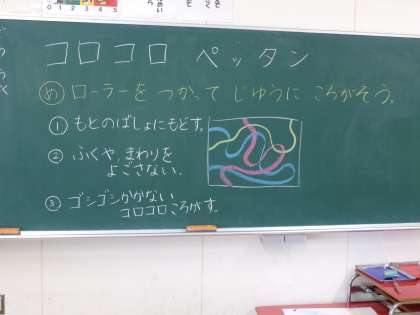 コロコロ ペッタン
め ローラーを つかって じゆうに ころがそう。
① もとのばしょにもどす。
② ふくや、まわりを
よごさない。
③ ゴシゴシかかない
コロコロころがす。